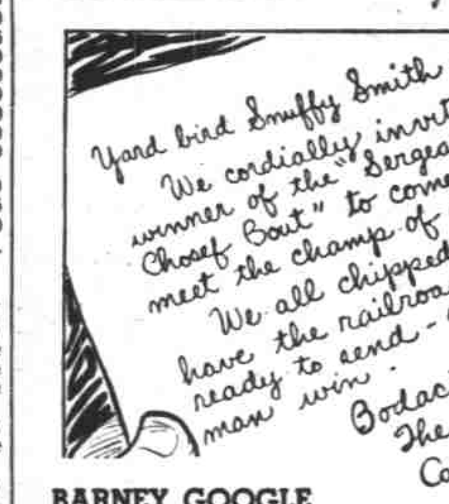 Yard bird Snuffy Smith
We cordially invit
winner of the "Sergea
Chosef Bout" to come
meet the champ of
We all chipped
have the railroa
ready to send -
man win.
Bodac
The
Co
BARNEY GOOGLE